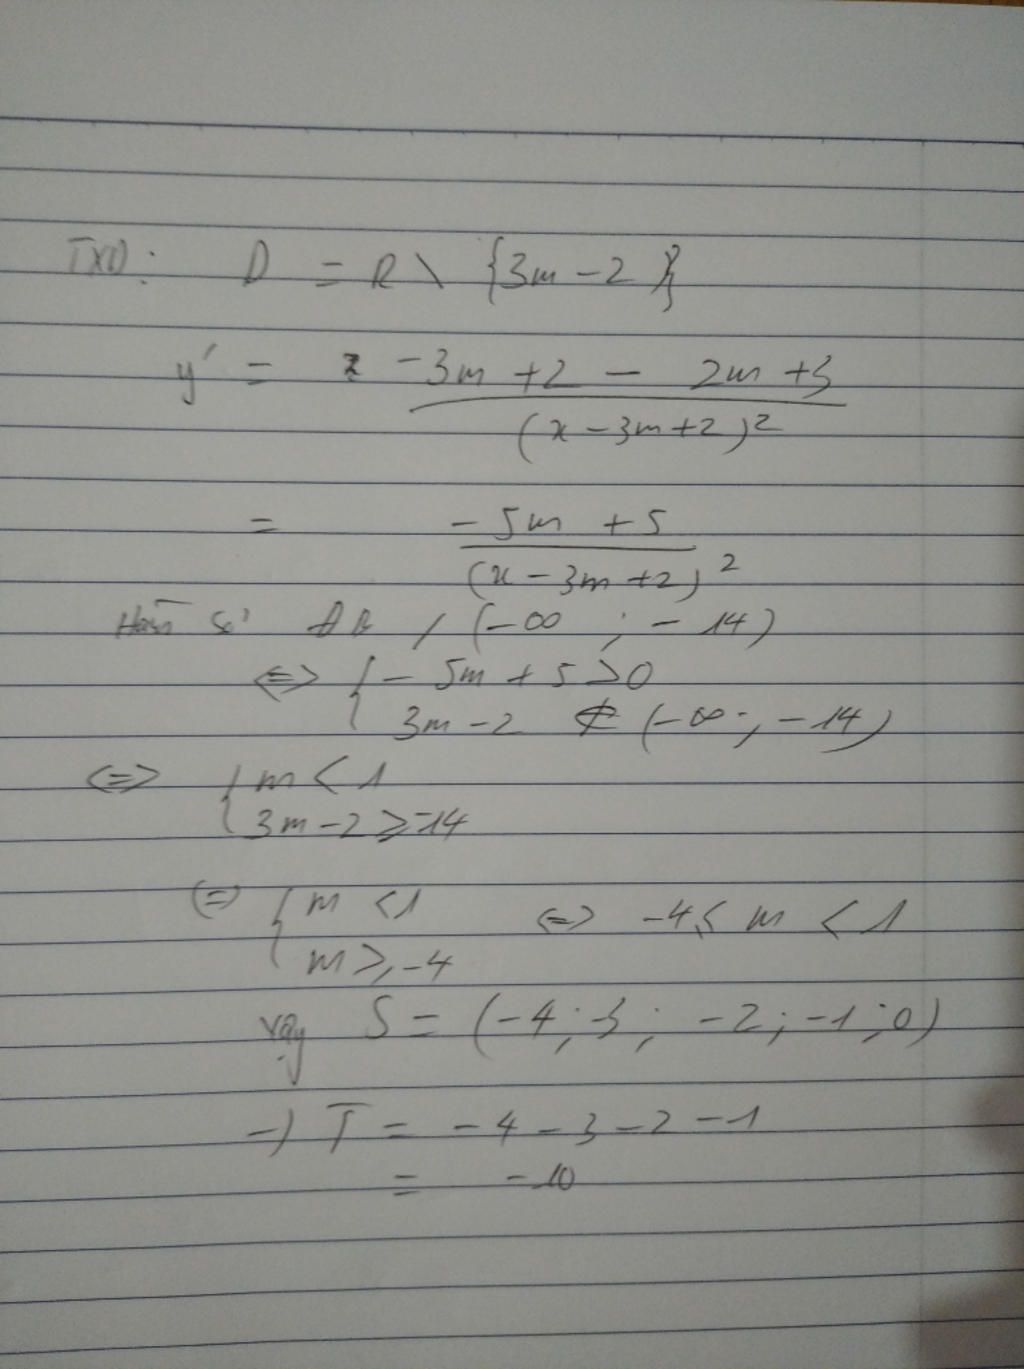 TXD: D = R \ {3m - 2}
y' = -3m + 2 - 2m + 3
(x - 3m + 2)²
= -5m + 5
(x - 3m + 2)²
Hàm số ĐB / (-∞ ; -14)
<=> { -5m + 5 > 0
3m - 2 ∉ (-∞ ; -14)
<=> { m < 1
3m - 2 ≥ -14
<=> { m < 1 <=> -4 ≤ m < 1
m ≥ -4
vậy S = (-4 ; -3 ; -2 ; -1 ; 0)
-) T = -4 - 3 - 2 - 1
= -10